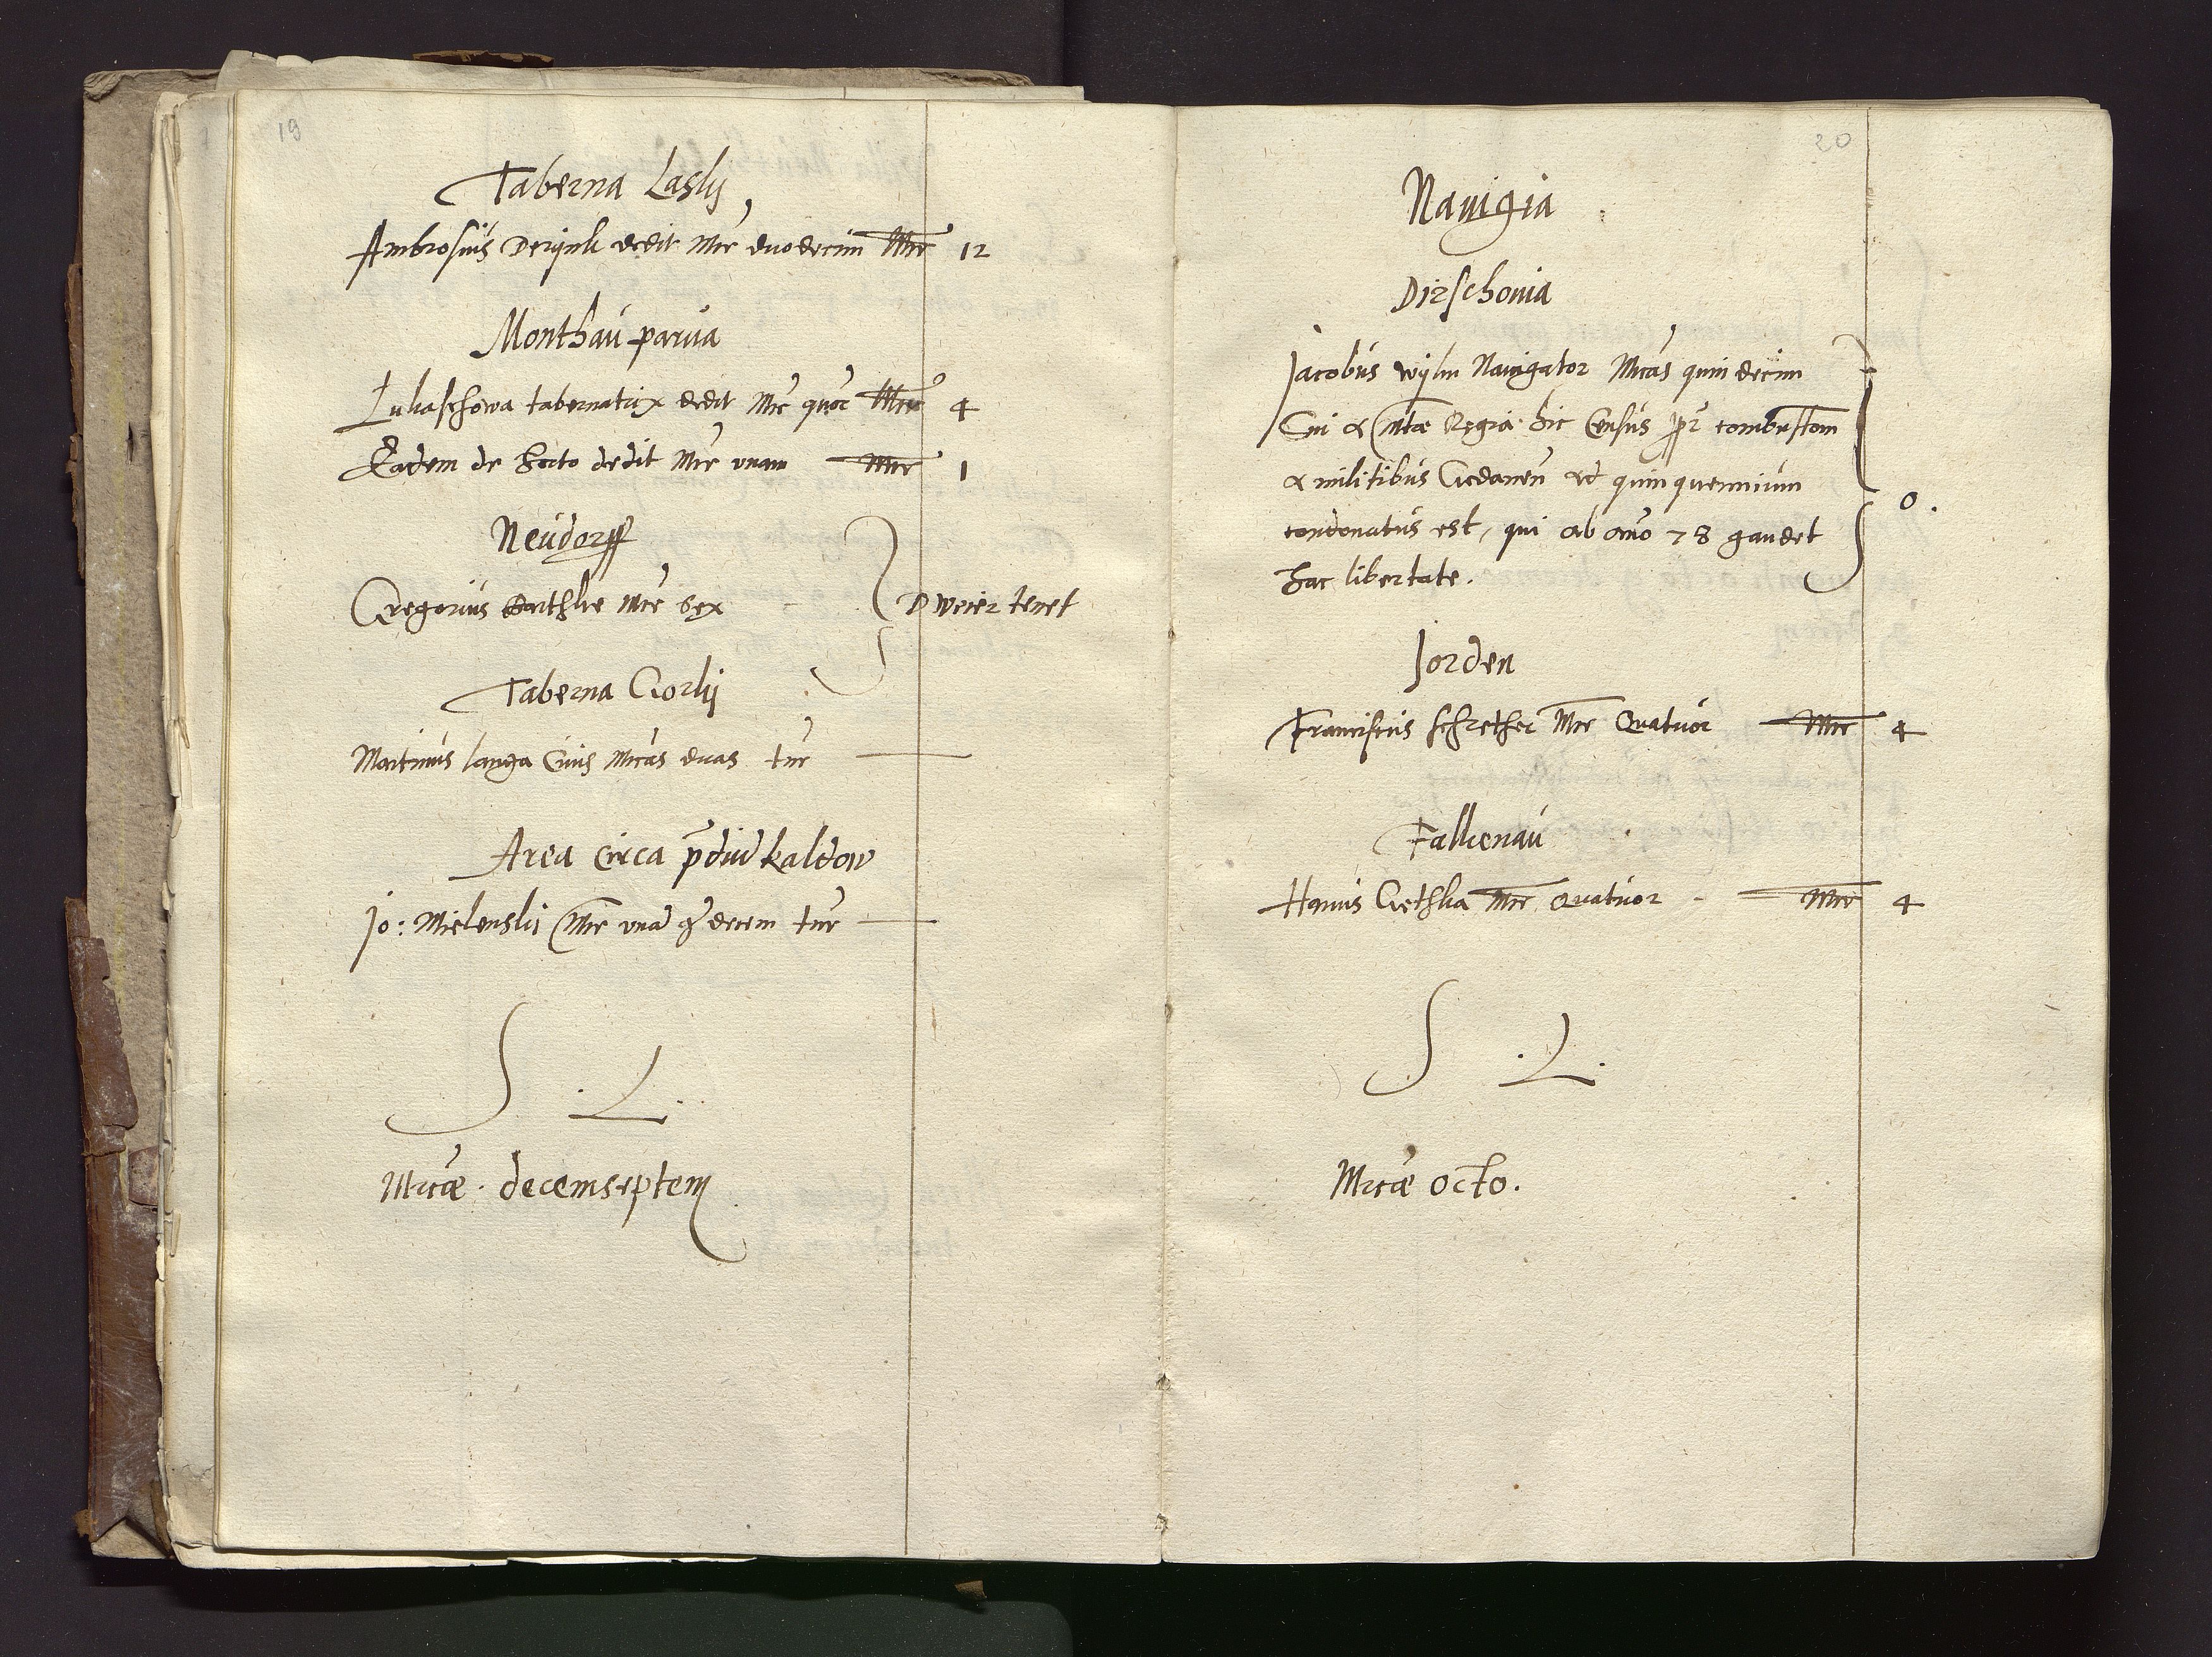 19
Taberna Lasky
Ambrosius Derynk dedit Mrc duodecim Mrc 12
Monthau parua
Lukaschowa tabernatrix dedit Mrc quor Mrc 4
Eadem de horto dedit Mrc vnam Mrc 1
Neudorff
Gregorius Mrc sex
D Weier tenet
Taberna Gorky
Martinus langa Ciuis Mrcas duas tnr
Area circa pdiu Kaldow
Jo: Mielenskij Mrc vna gr decem tnr
S . L .
Mrcæ . decemseptem
20
Nauigia
Dirschouia
Jacobus wylm Nauigator Mrcas quindecim
Cui a Mtæ Regia hic Census ppr combustom
a militibus Gedanen ad quinquennium
condonatus est, qui ab ano 78 gaudet 0.
hac libertate.
Jorden
Franciscus schrether Mrc Quatuor Mrc 4
Falkenau
Hanus Gethka Mrc Quatuor Mrc 4
S . L .
Mrcæ octo.